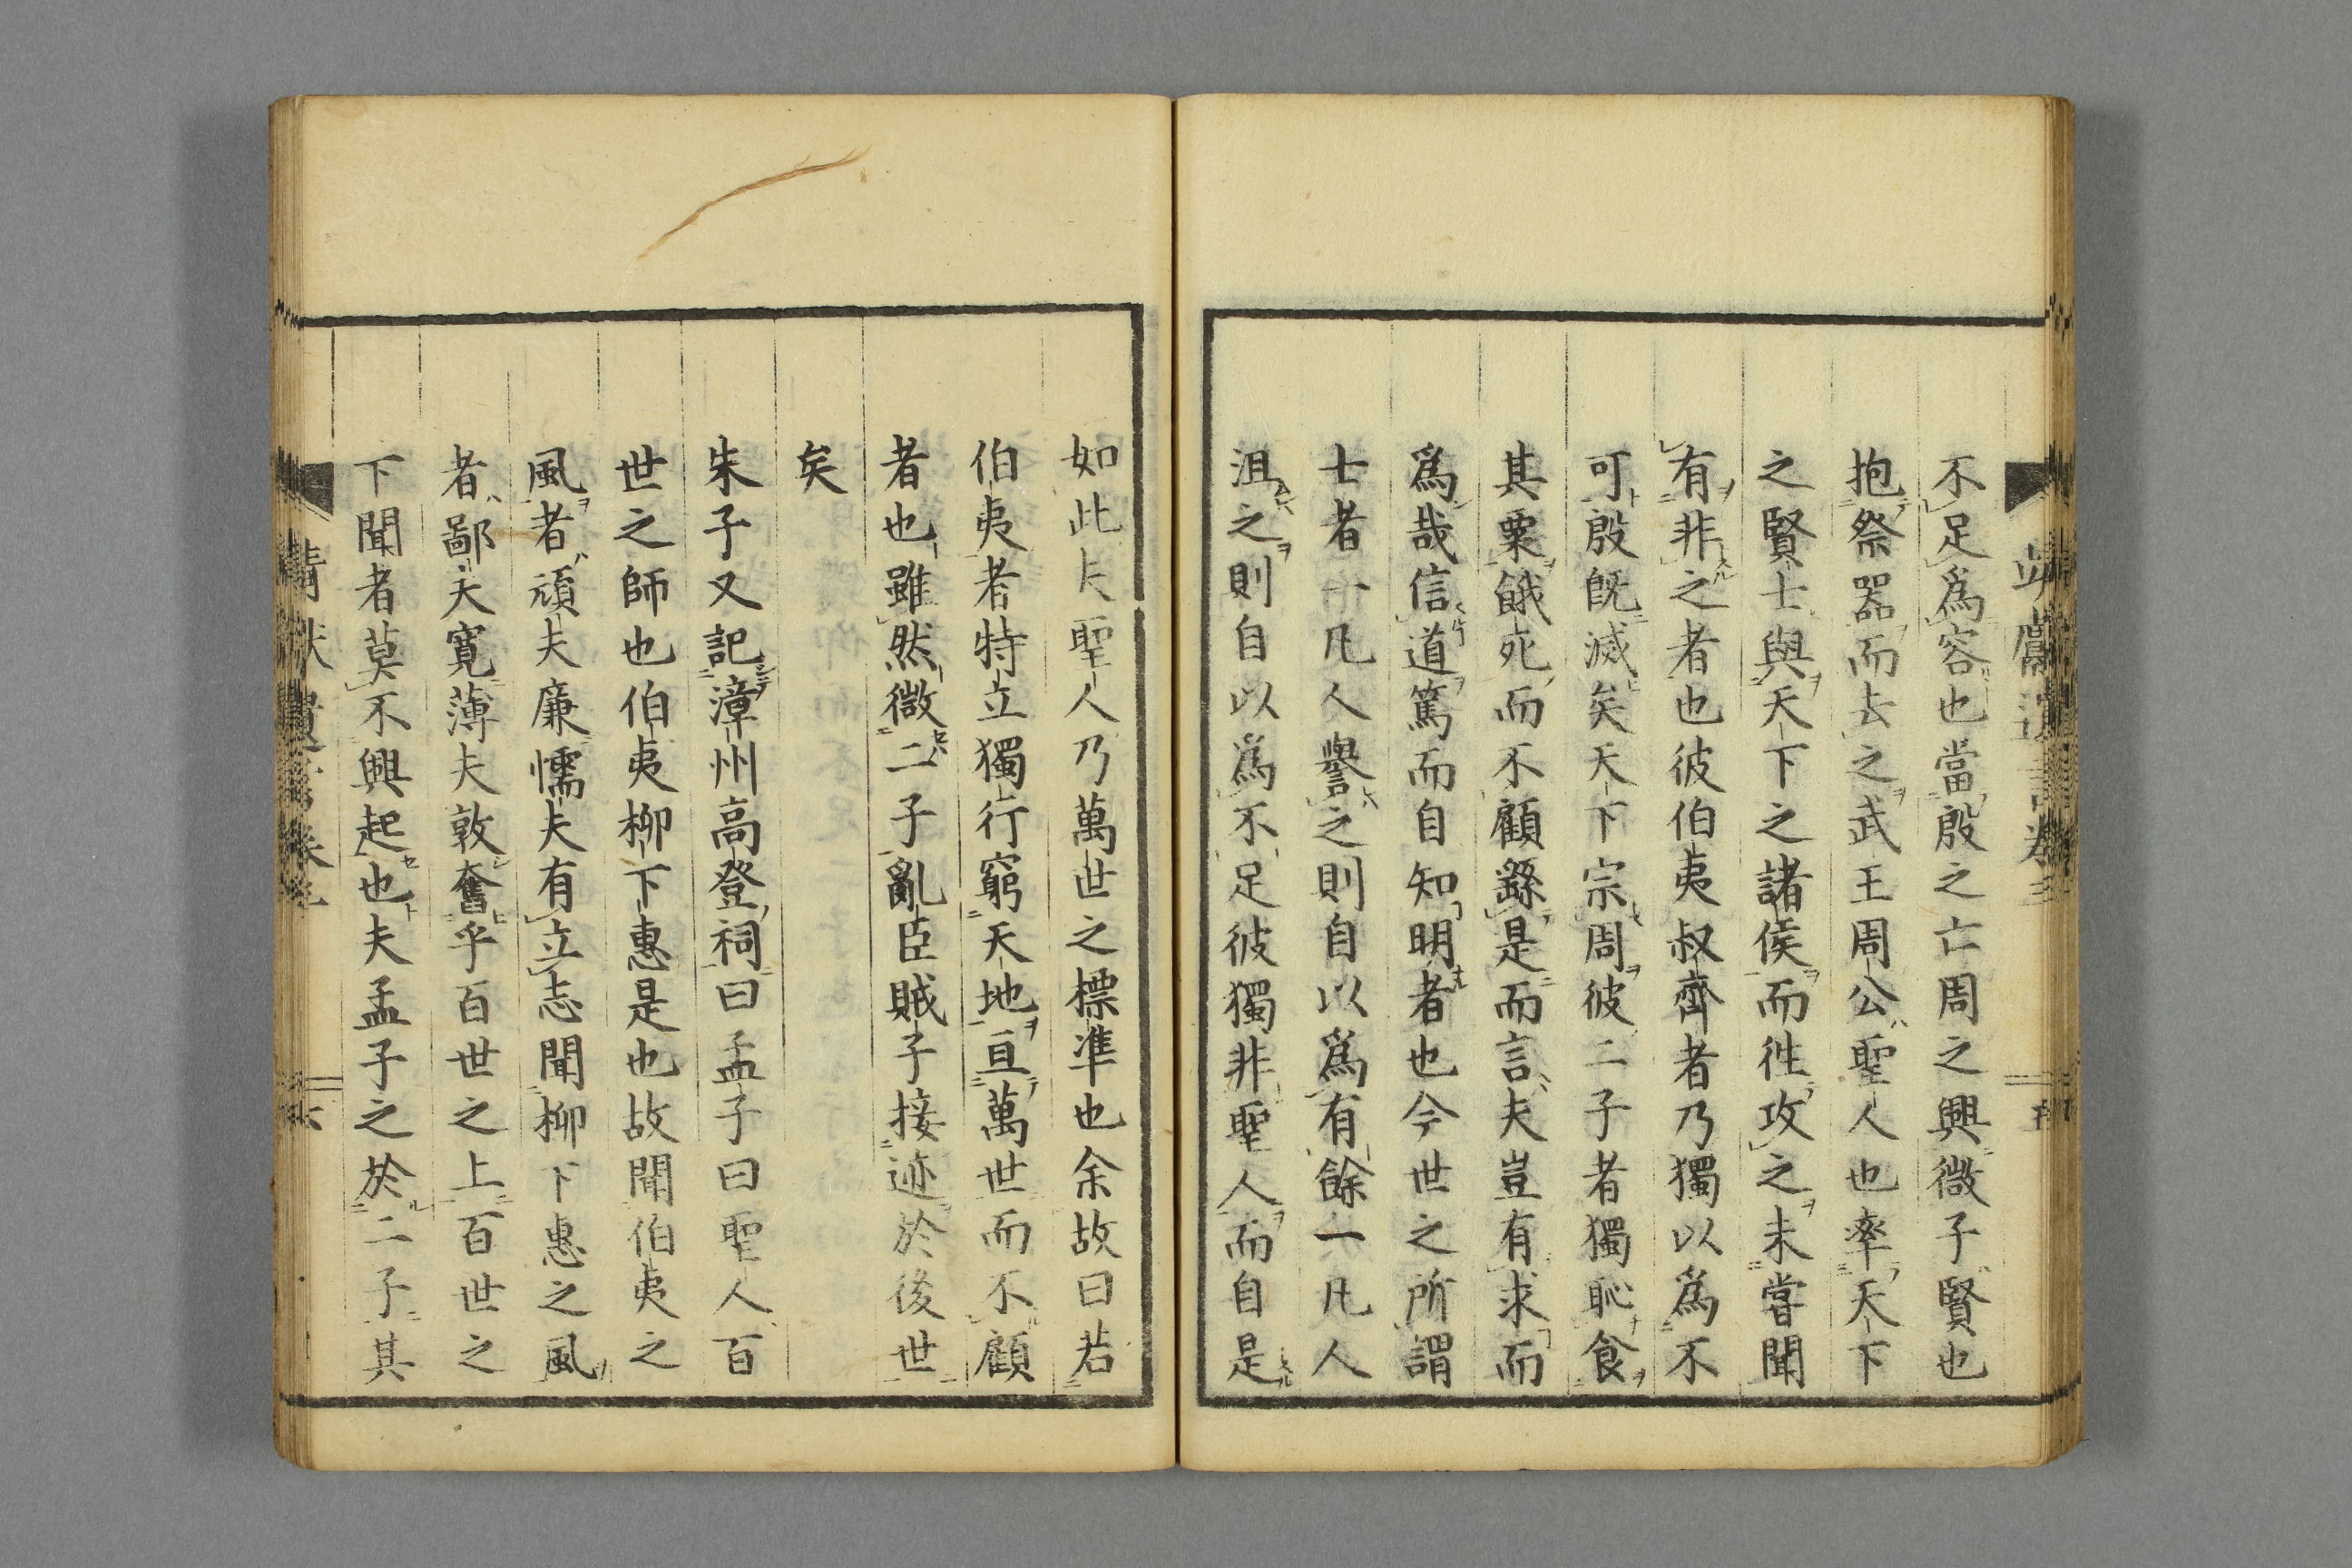 靖獻遺言卷三
五
不足爲容也當殷之亡周之興微子賢也
抱祭器而去之武王周公聖人也率天下
之賢士與天下之諸侯而往攻之未嘗聞
有非之者也彼伯夷叔齊者乃獨以爲不
可殷既滅矣天下宗周彼二子者獨恥食
其粟餓死而不顧繇是而言夫豈有求而
爲哉信道篤而自知明者也今世之所謂
士者一凡人譽之則自以爲有餘一凡人
沮之則自以爲不足彼獨非聖人而自是
如此夫聖人乃萬世之標準也余故曰若
伯夷者特立獨行窮天地亘萬世而不顧
者也雖然微二子亂臣賊子接迹於後世
矣
朱子又記漳州高登祠曰孟子曰聖人百
世之師也伯夷柳下惠是也故聞伯夷之
風者頑夫廉懦夫有立志聞柳下惠之風
者鄙夫寛薄夫敦奮乎百世之上百世之
下聞者莫不興起也夫孟子之於二子其
六